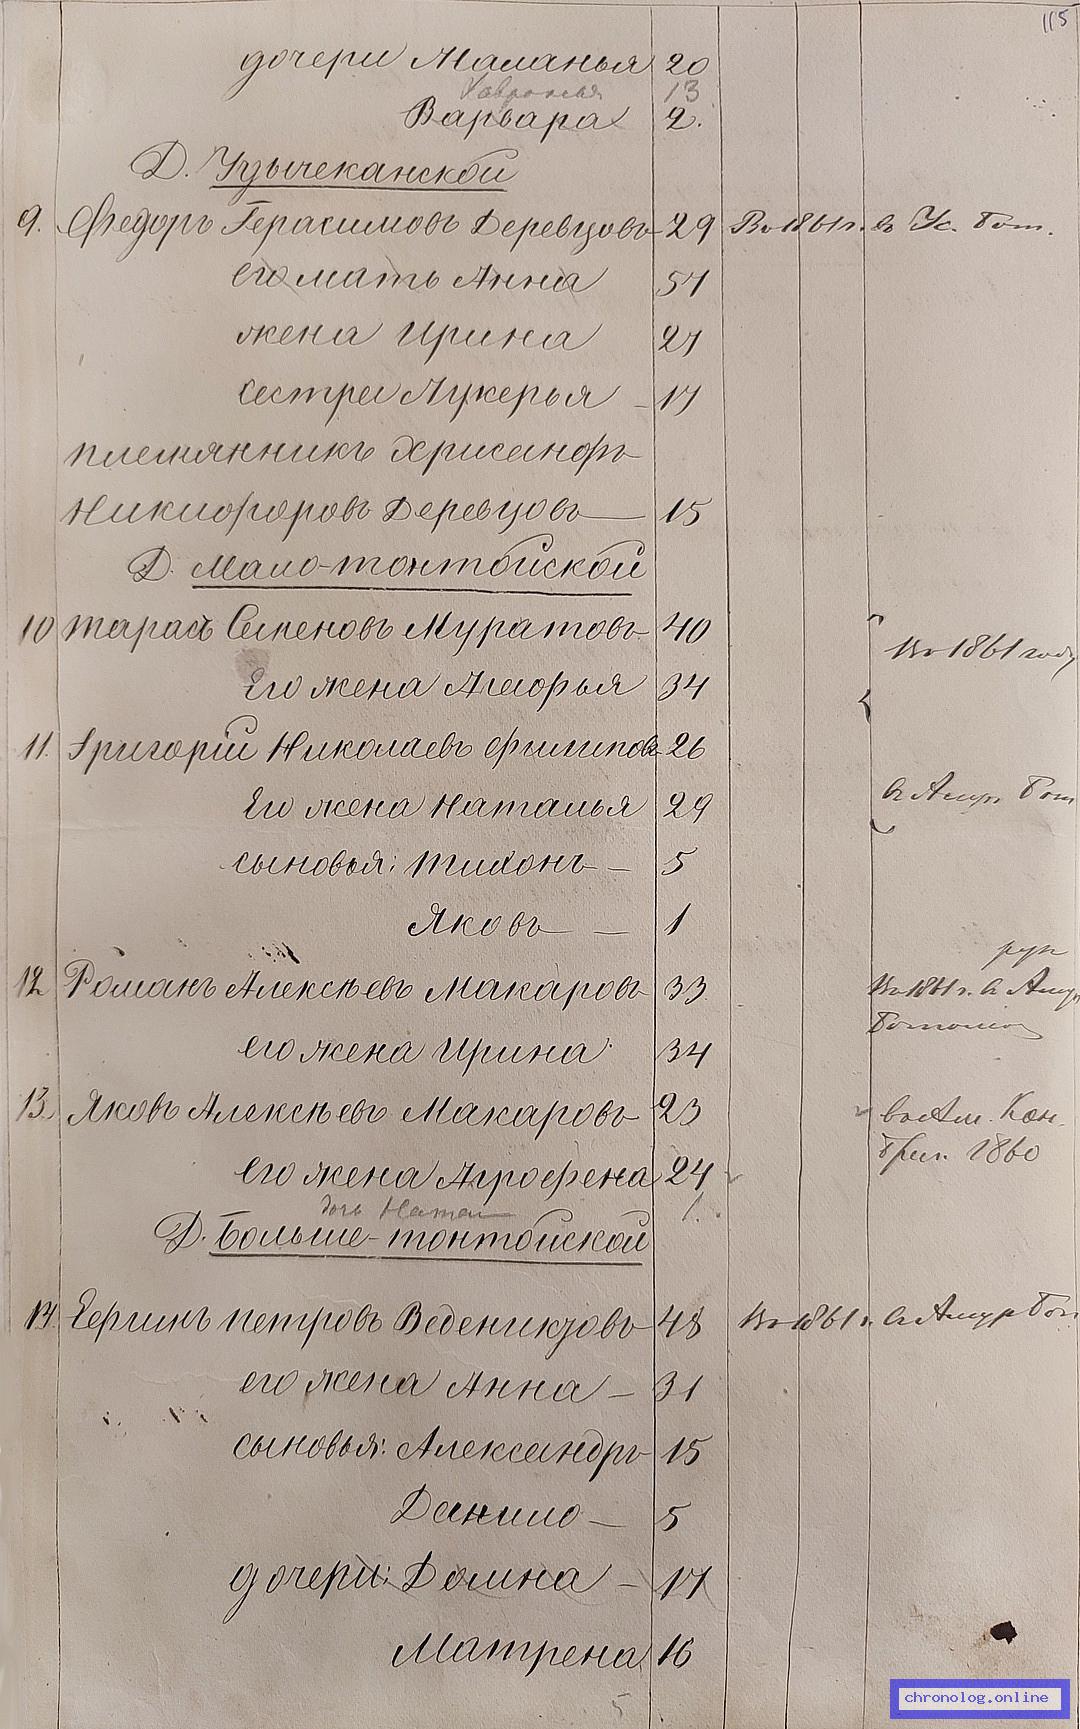 115
дочери Маланья 20
Хавронья 13
Варвара 2.
Д. Узычеканской
9. Федоръ Герасимовъ Деревцовъ 29 Въ 1861 г. въ Ус. бат.
его мать Анна 57
жена Ирина 27
сестра Лукерья 17
племянникъ Хрисанфъ
Никифоровъ Деревцовъ 15
Д. Мало-тонтойской
10 Тарасъ Семеновъ Муратовъ 40
Въ 1861 году
Его жена Агафья 34
11. Григорій Николаевъ Филиповъ 26
Его жена Наталья 29 въ Амур. бат
сыновья: Тихонъ 5
Яковъ 1
12 Романъ Алексѣевъ Макаровъ 33 Въ 1861 г. въ Амур
его жена Ирина 34
13. Яковъ Алексѣевъ Макаровъ 23 въ Ам. Кон.
его жена Агрофена 24 бриг. 1860
дочь Натал 1.
Д. Больше-тонтойской
14. Сергѣй Петровъ Веденикзовъ 48 Въ 1861 г. въ Амур бат
его жена Анна 31
сыновья: Александръ 15
Данило 5
дочери: Домна 17
Матрена 16
5
chronolog.online